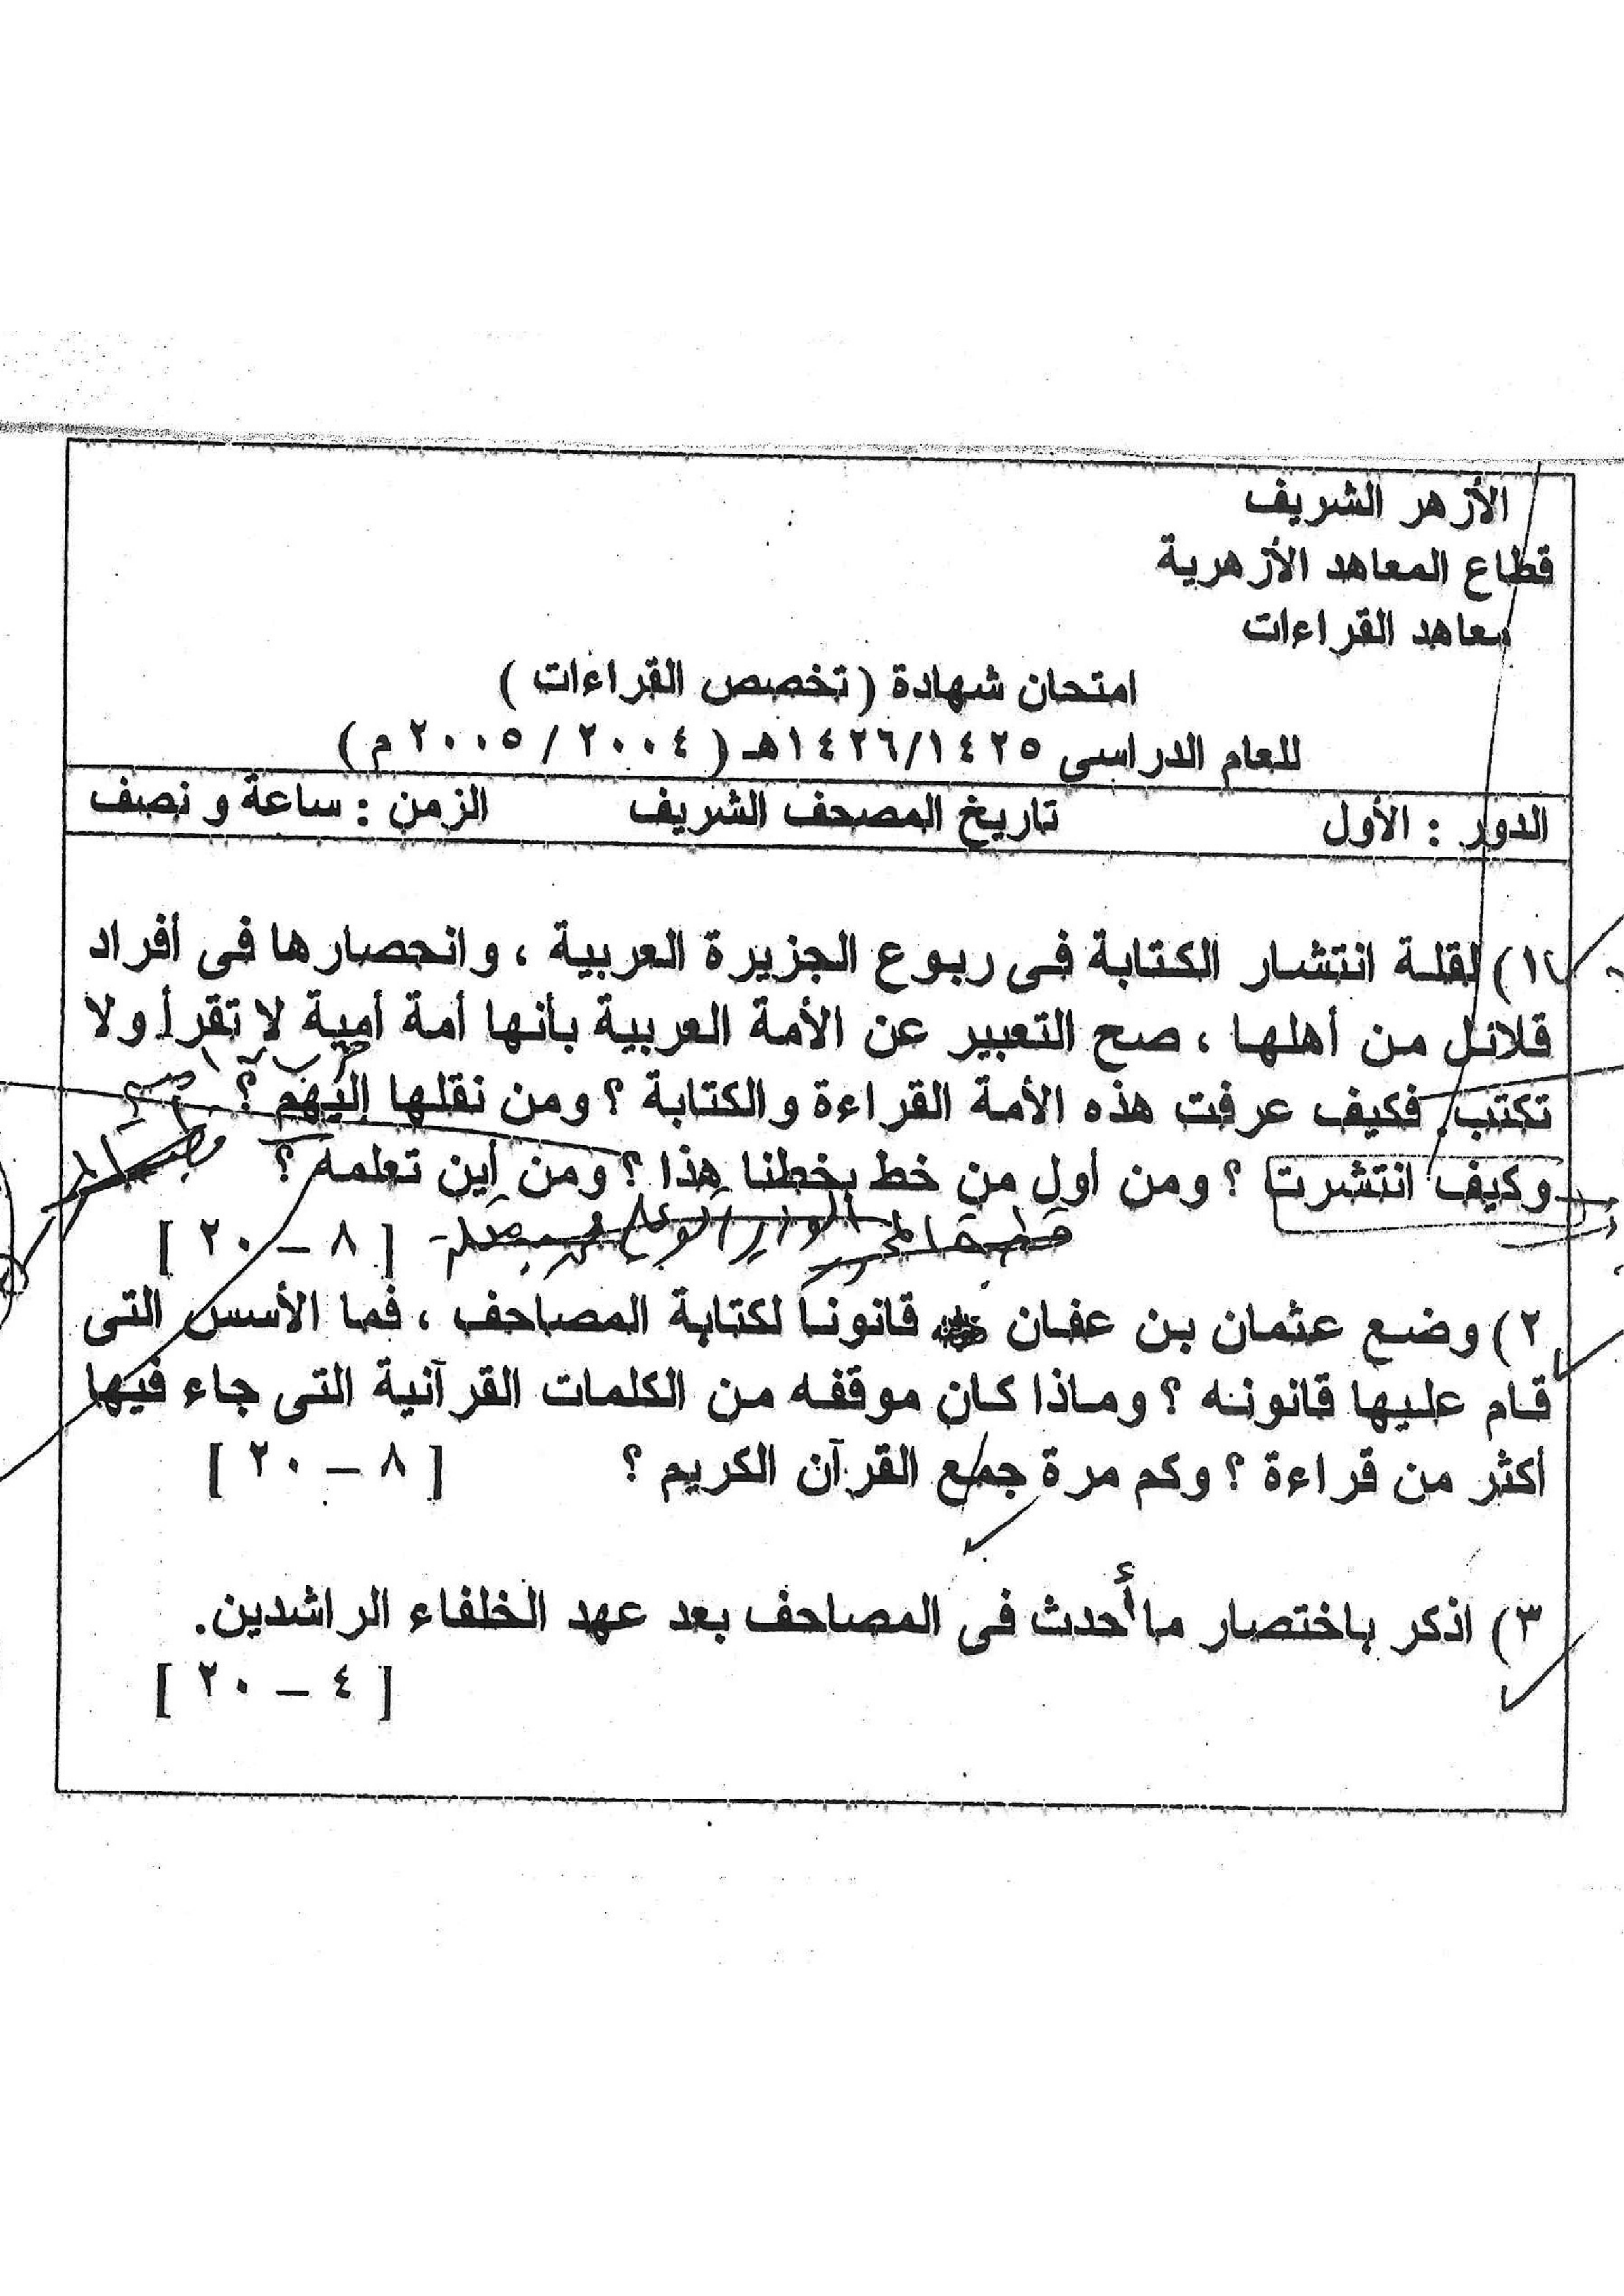 الأزهر الشريف
قطاع المعاهد الأزهرية
معاهد القراءات
امتحان شهادة ( تخصص القراءات )
للعام الدراسى ١٤٢٦/١٤٢٥هـ ( ٢٠٠٤ / ٢٠٠٥ م )
الدور : الأول تاريخ المصحف الشريف الزمن : ساعة و نصف
١) لقلة انتشار الكتابة فى ربوع الجزيرة العربية ، وانحصارها فى أفراد
قلائل من أهلها ، صح التعبير عن الأمة العربية بأنها أمة أمية لا تقرأ ولا
تكتب. فكيف عرفت هذه الأمة القراءة والكتابة ؟ ومن نقلها إليهم ؟
وكيف انتشرت ؟ ومن أول من خط بخطنا هذا ؟ ومن أين تعلمه ؟
[ ٨ – ٢٠ ]
٢) وضع عثمان بن عفان رضي الله عنه قانونا لكتابة المصاحف ، فما الأسس التى
قام عليها قانونه ؟ وماذا كان موقفه من الكلمات القرآنية التى جاء فيها
أكثر من قراءة ؟ وكم مرة جمع القرآن الكريم ؟ [ ٨ – ٢٠ ]
٣) اذكر باختصار ما أحدث فى المصاحف بعد عهد الخلفاء الراشدين.
[ ٤ – ٢٠ ]